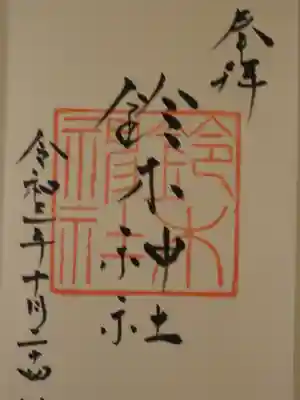 奉拝
鈴木神社
令和二年十月二十四
鈴木